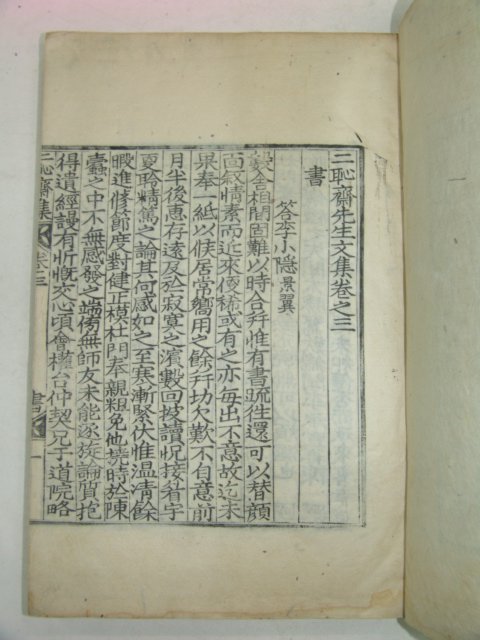 二恥齋先生文集卷之三
書
答李小隱景翼
歉舍相閡固難以時合幷惟有書疏往還可以替顔
面叙情素而近來便稀或有之亦每出不意故迄未
果奉一紙以候居常嚮用之餘幷切欠歎不自意前
月半後惠存遠及於寂寞之濱數回披讀怳接眉宇
夏吟精篤之論其何感如之至寒漸緊伏惟溫凊餘
暇進修節度對健正模杜門奉親粗免他撓時於陳
蠹之中不無感發之端而獨無師友未能逐旋論質抱
得遺經謾有忻慨交心頃會權台仲契兄于道院略
二恥齋集 卷三 書 一